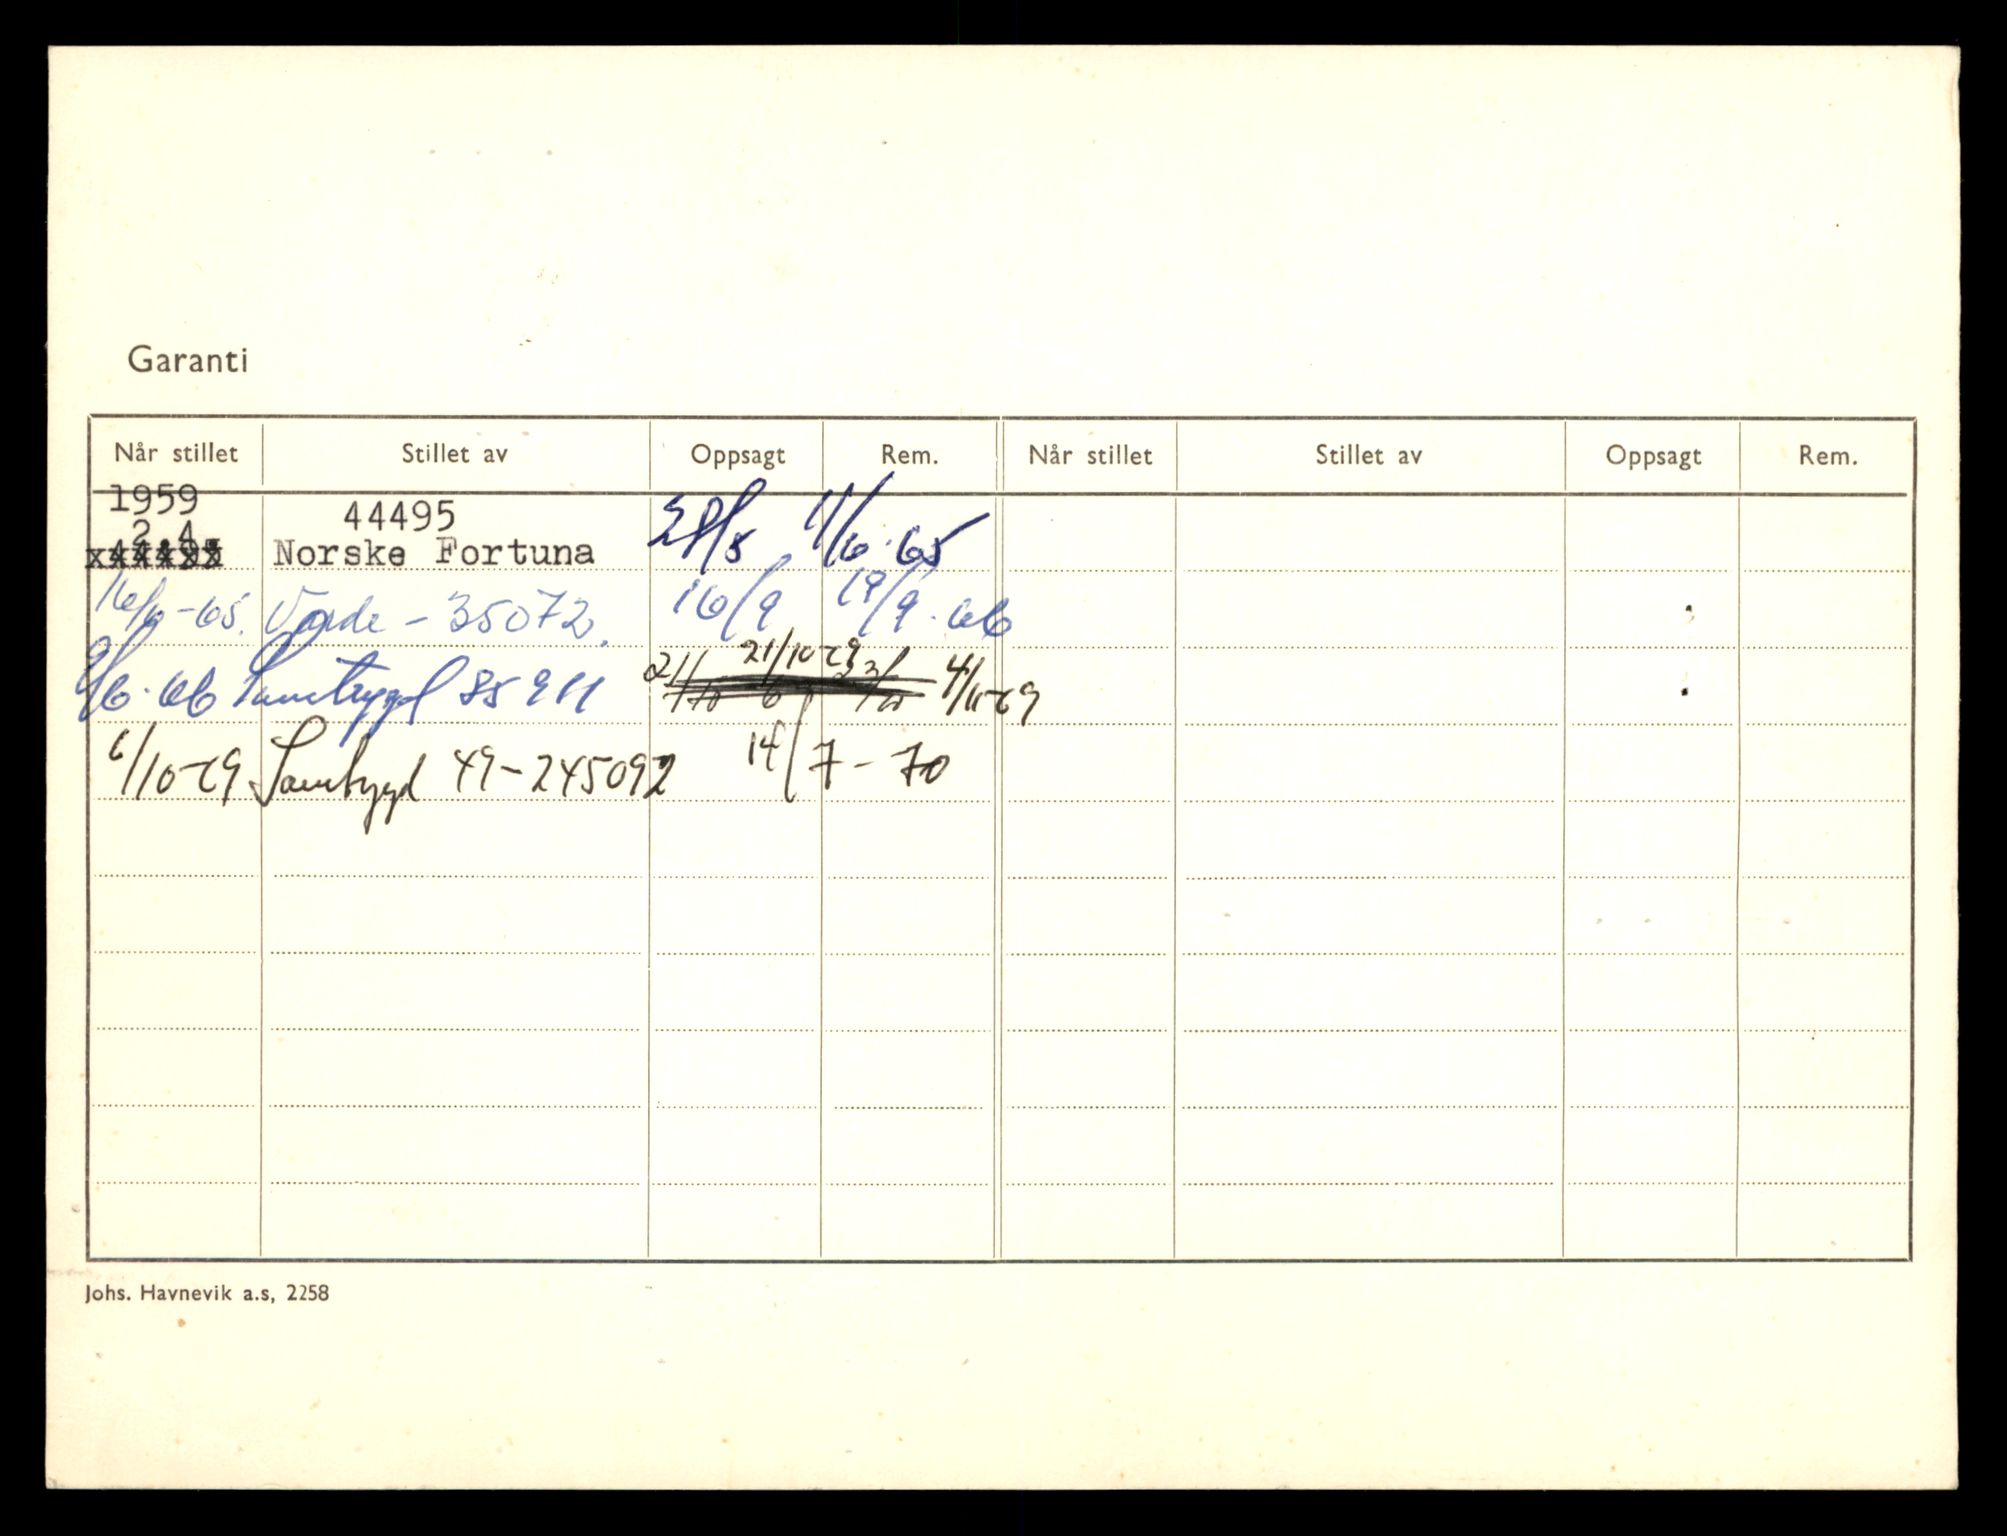 Garanti
Når stillet Stillet av Oppsagt Rem. Når stillet Stillet av Oppsagt Rem.
1959
2.4. 44495
Norske Fortuna 28/5 11/6.65
16/6-65. Varde - 35072. 16/9 19/9.66
9/6.66 Samtrygd 85911 21/10-69 4/11-69
6/10-69 Samtrygd 49-245092 14/7-70
Johs. Havnevik a.s, 2258